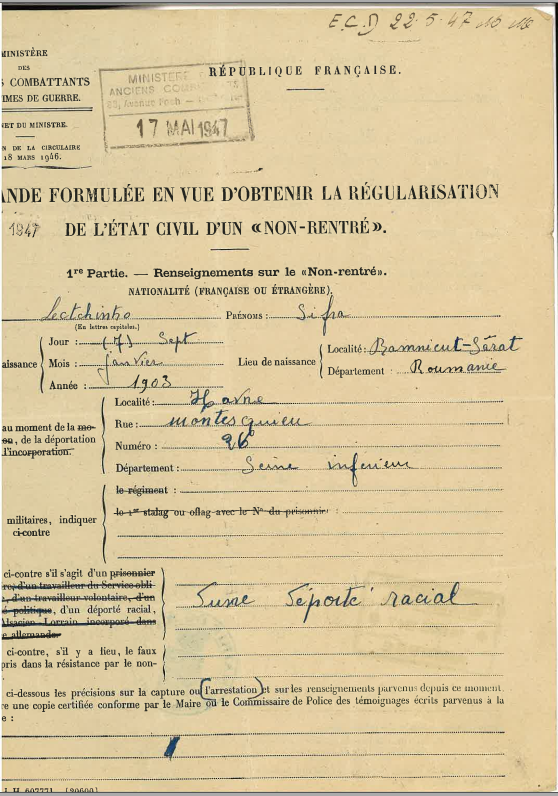 E.C.D 22.5.47
MINISTÈRE
DES
S COMBATTANTS
TIMES DE GUERRE.
NET DU MINISTRE.
N DE LA CIRCULAIRE
18 MARS 1946.
MINISTÈRE
ANCIENS COMB
Avenue Foch
17 MAI 1947
RÉPUBLIQUE FRANÇAISE.
ANDE FORMULÉE EN VUE D'OBTENIR LA RÉGULARISATION
1947 DE L'ÉTAT CIVIL D'UN «NON-RENTRÉ».
1re Partie. — Renseignements sur le «Non-rentré».
NATIONALITÉ (FRANÇAISE OU ÉTRANGÈRE).
PRÉNOMS : Sifra
(En lettres capitales.)
Jour : (7) Sept
aissance Mois : janvier
Année : 1903
Lieu de naissance
Localité : Ramnicut-Sărat
Département : Roumanie
Localité : Havre
Rue : montesquieu
Numéro : 26
Département : Seine inférieure
au moment de la mo-
on, de la déportation
l'incorporation.
le régiment :
le 1er stalag ou oflag avec le N° du prisonnier :
militaires, indiquer
ci-contre
ci-contre s'il s'agit d'un prisonnier
re, d'un travailleur du Service obli-
, d'un travailleur volontaire, d'un
é politique, d'un déporté racial,
Alsacien-Lorrain incorporé dans
e allemande.
déporté racial
ci-contre, s'il y a lieu, le faux
pris dans la résistance par le non-
ci-dessous les précisions sur la capture ou l'arrestation et sur les renseignements parvenus depuis ce moment.
re une copie certifiée conforme par le Maire ou le Commissaire de Police des témoignages écrits parvenus à la
e :
J. H. 607771. [20600]